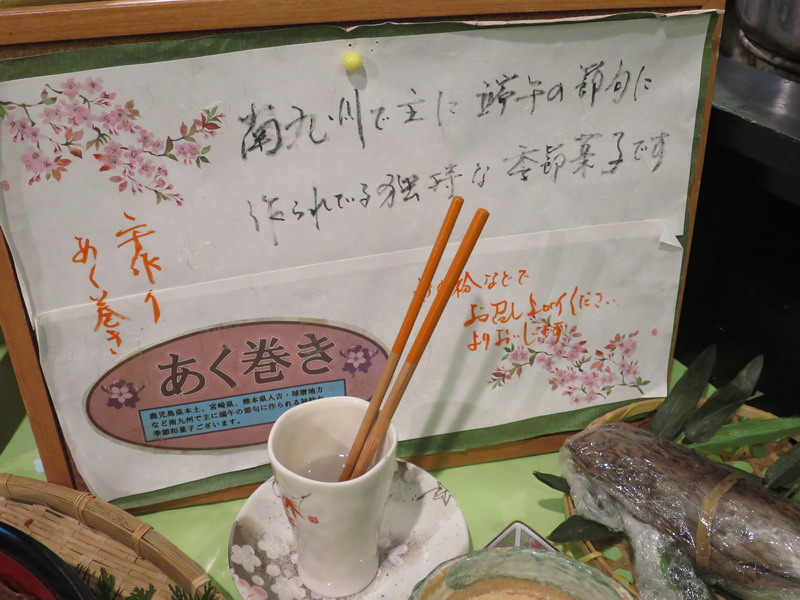 南九州で主に端午の節句に
作られてる独特な季節菓子です
手作り
あく巻き
などで
お召し上がりください
よりおいします
あく巻き
鹿児島県本土、宮崎県、熊本県人吉・球磨地方
など南九州で主に端午の節句に作られる
季節和菓子ございます。